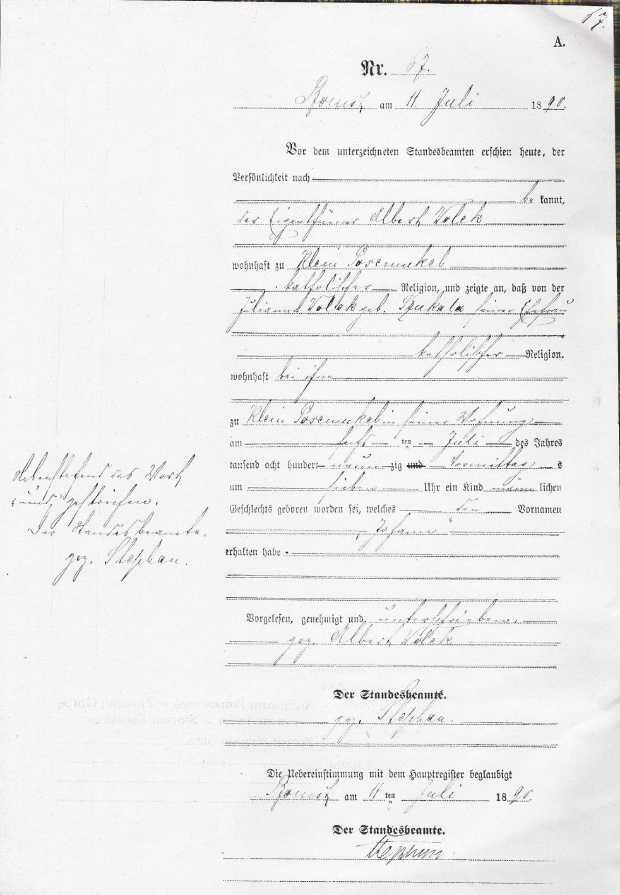 67.
A.
Nr. 67.
Bomst, am 11 Juli 1890.
Vor dem unterzeichneten Standesbeamten erschien heute, der
Persönlichkeit nach
be kannt,
der Eigenthümer Albert Wolek
wohnhaft zu Klein Posemukel
katholischer Religion, und zeigte an, daß von der
Julianna Wolek geb. Bukala seiner Ehefrau
katholischer Religion.
wohnhaft bei ihm
zu Klein Posemukel in seiner Wohnung
am ten Juli des Jahres
tausend acht hundert neun zig und Vormittags
um sieben Uhr ein Kind männ lichen
Geschlechts geboren worden sei, welches den Vornamen
„Johann"
erhalten habe.
Nebenstehend das Wort
„und" gestrichen.
Der Standesbeamte.
gez. Stephan.
Vorgelesen, genehmigt und unterschrieben.
gez. Albert Wolek
Der Standesbeamte.
gez. Stephan.
Die Uebereinstimmung mit dem Hauptregister beglaubigt
Bomst, am 11 ten Juli 1890.
Der Standesbeamte.
Stephan